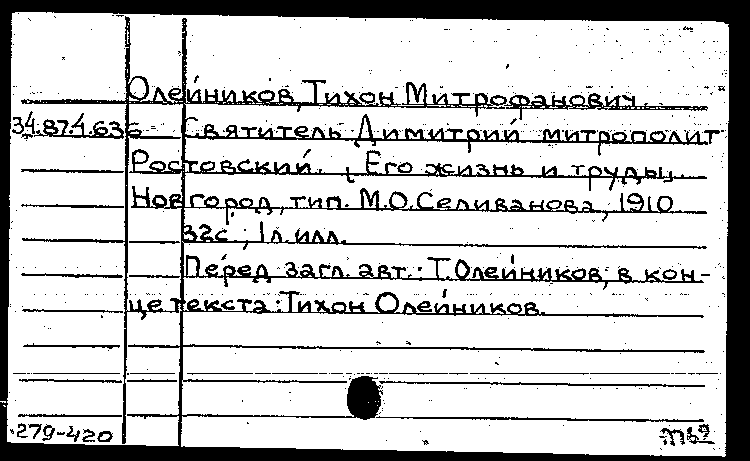 Олейников, Тихон Митрофанович.
34.874.636 Святитель Димитрий митрополит
Ростовский. Его жизнь и труды.
Новгород, тип. М.О.Селиванова, 1910
32с., 1л.илл.
Перед загл. авт.: Т.Олейников, в кон-
це текста: Тихон Олейников.
279-420